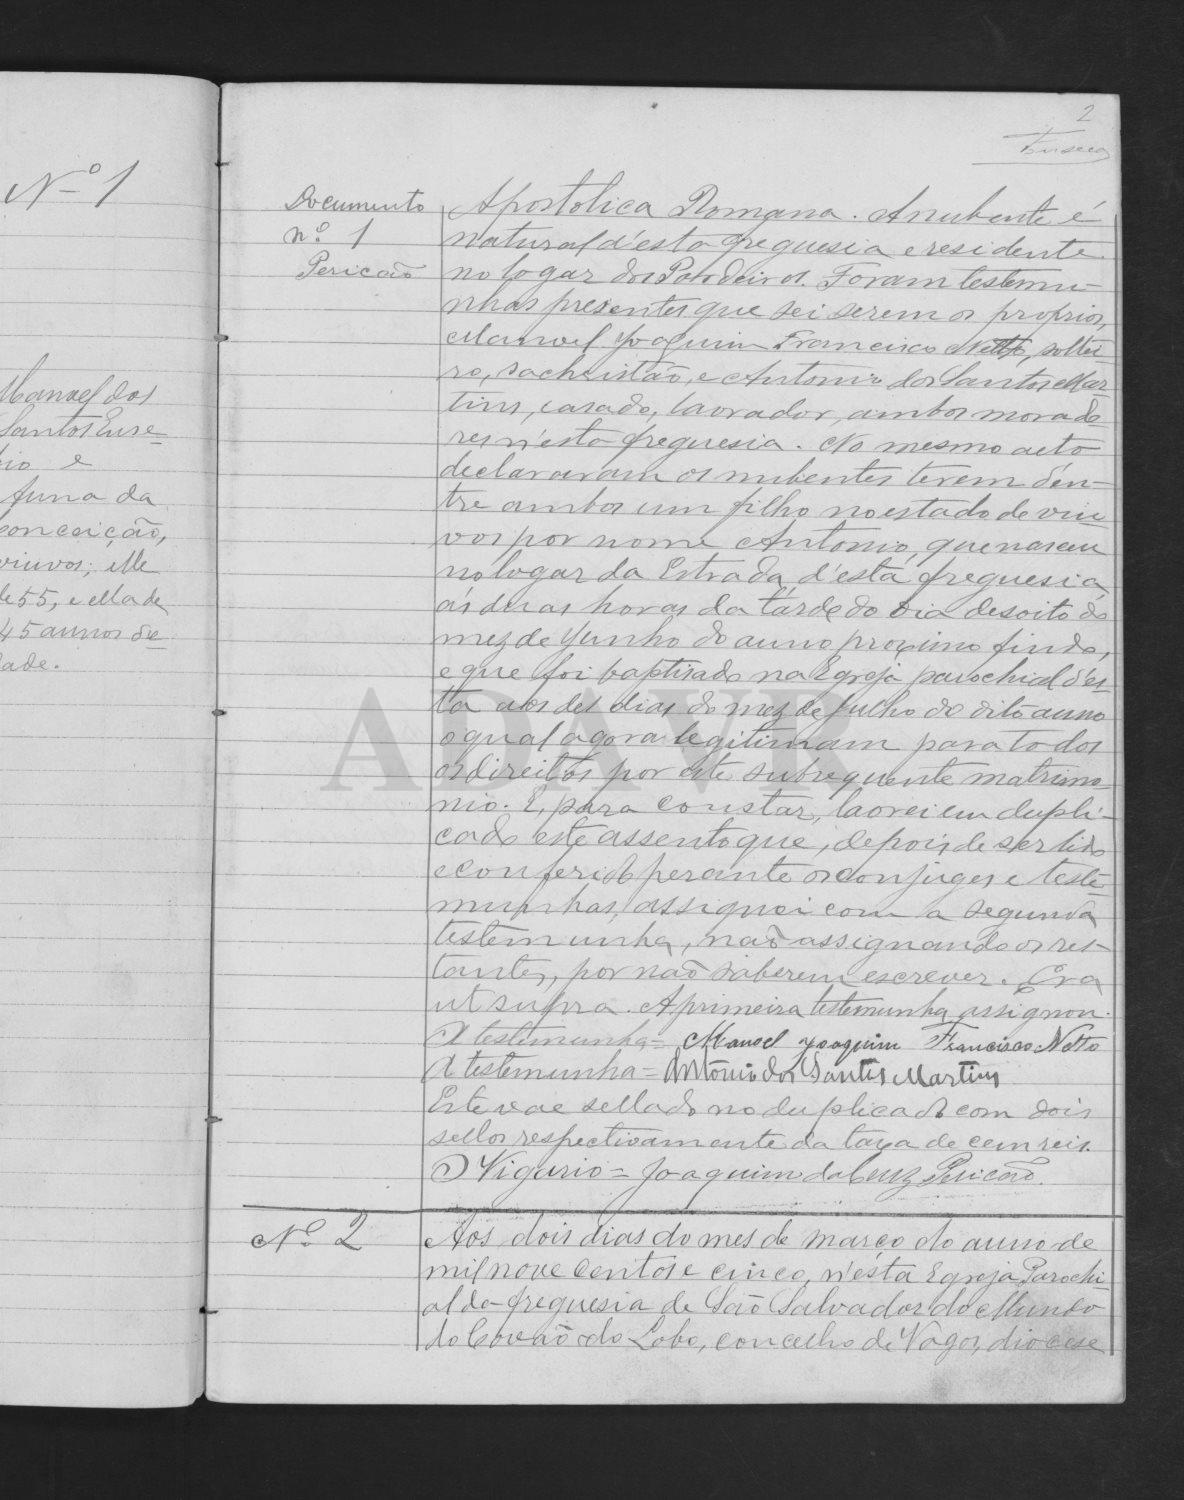 2
Fonseca
Nº 1
Manoel dos
Santos Euse-
bio e
Anna da
Conceição,
viuvos; elle
de 55, e ella de
45 annos de
idade.
Documento
nº 1
Pericão
Apostolica Romana. A nubente é
natural d'esta freguesia e residente
no logar dos Pardeiros. Foram testemu-
nhas presentes que sei serem os proprios,
Manoel Joaquim Francisco Netto, soltei-
ro, sachristão, e Antonio dos Santos Mar-
tins, casado, lavrador, ambos morado-
res n'esta freguesia. No mesmo acto
declararam os nubentes terem d'en-
tre ambos um filho no estado de viu-
vos por nome Antonio, que nasceu
no logar da Estrada, d'esta freguesia,
ás duas horas da tarde do dia desoito do
mez de Junho do anno proximo findo,
e que foi baptisado na Egreja parochial d'es-
ta aos des dias do mez de Julho do dito anno
o qual agora legitimam para todos
os direitos por este subsequente matrimo-
nio. E, para constar, lavrei em dupli-
cado este assento que, depois de ser lido
e conferido perante os conjuges e teste-
munhas, assignei com a segunda
testemunha, não assignando os res-
tantes, por não saberem escrever. Era
ut supra. A primeira testemunha assignou.
A testemunha = Manoel Joaquim Francisco Netto
A testemunha = António dos Santos Martins
Este vae sellado no duplicado com dois
sellos respectivamente da taxa de cem reis.
O Vigario = Joaquim da Cruz Pericão.
Nº 2
Aos dois dias do mes de março do anno de
mil nove centos e cinco, n'esta Egreja Parochi-
al da freguesia de São Salvador do Mundo
do Covão do Lobo, concelho de Vagos, diocese
ADAVR